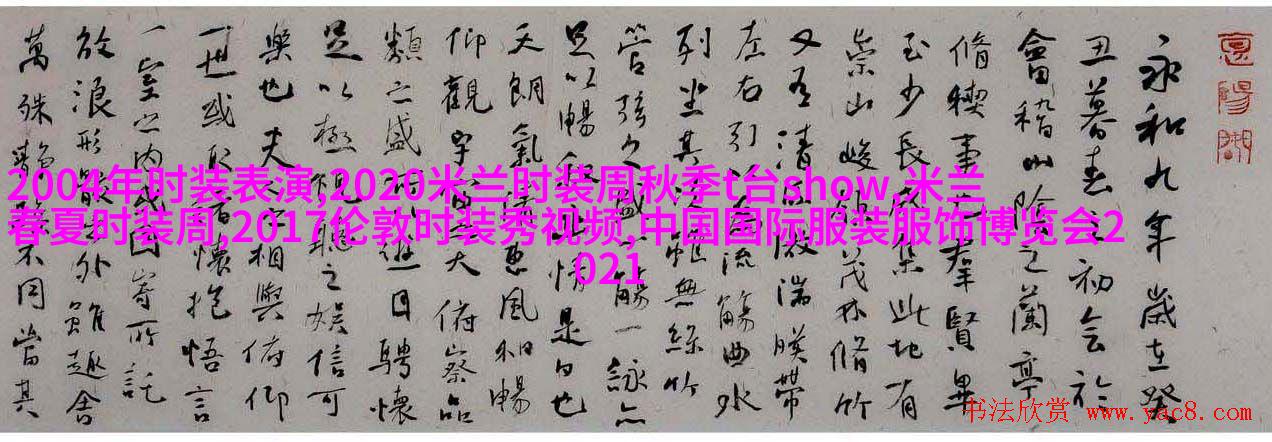 永和九年歲在癸
丑暮春之初会於
會稽山陰之蘭亭
脩稧事也羣賢畢
至少長咸集此地有
崇山峻領茂林脩竹
又有清流激湍暎帶
左右引以為流觴曲水
列坐其次雖無絲竹
管弦之盛一觴一詠亦
足以暢叙幽情是日也
天朗氣清惠風和暢
仰觀宇宙之大俯察品
類之盛所以遊目騁懷
足以極視聽之娱信可
樂也夫人之相與俯仰
一世或取諸懷抱悟言
一室之内或因寄所託
放浪形骸之外雖趣舍
萬殊静躁不同當其
2004年时装表演,2020米兰时装周秋季t台show,米兰
春夏时装周,2017伦敦时装秀视频,中国国际服装服饰博览会2
021
书法欣赏 www.yac8.com